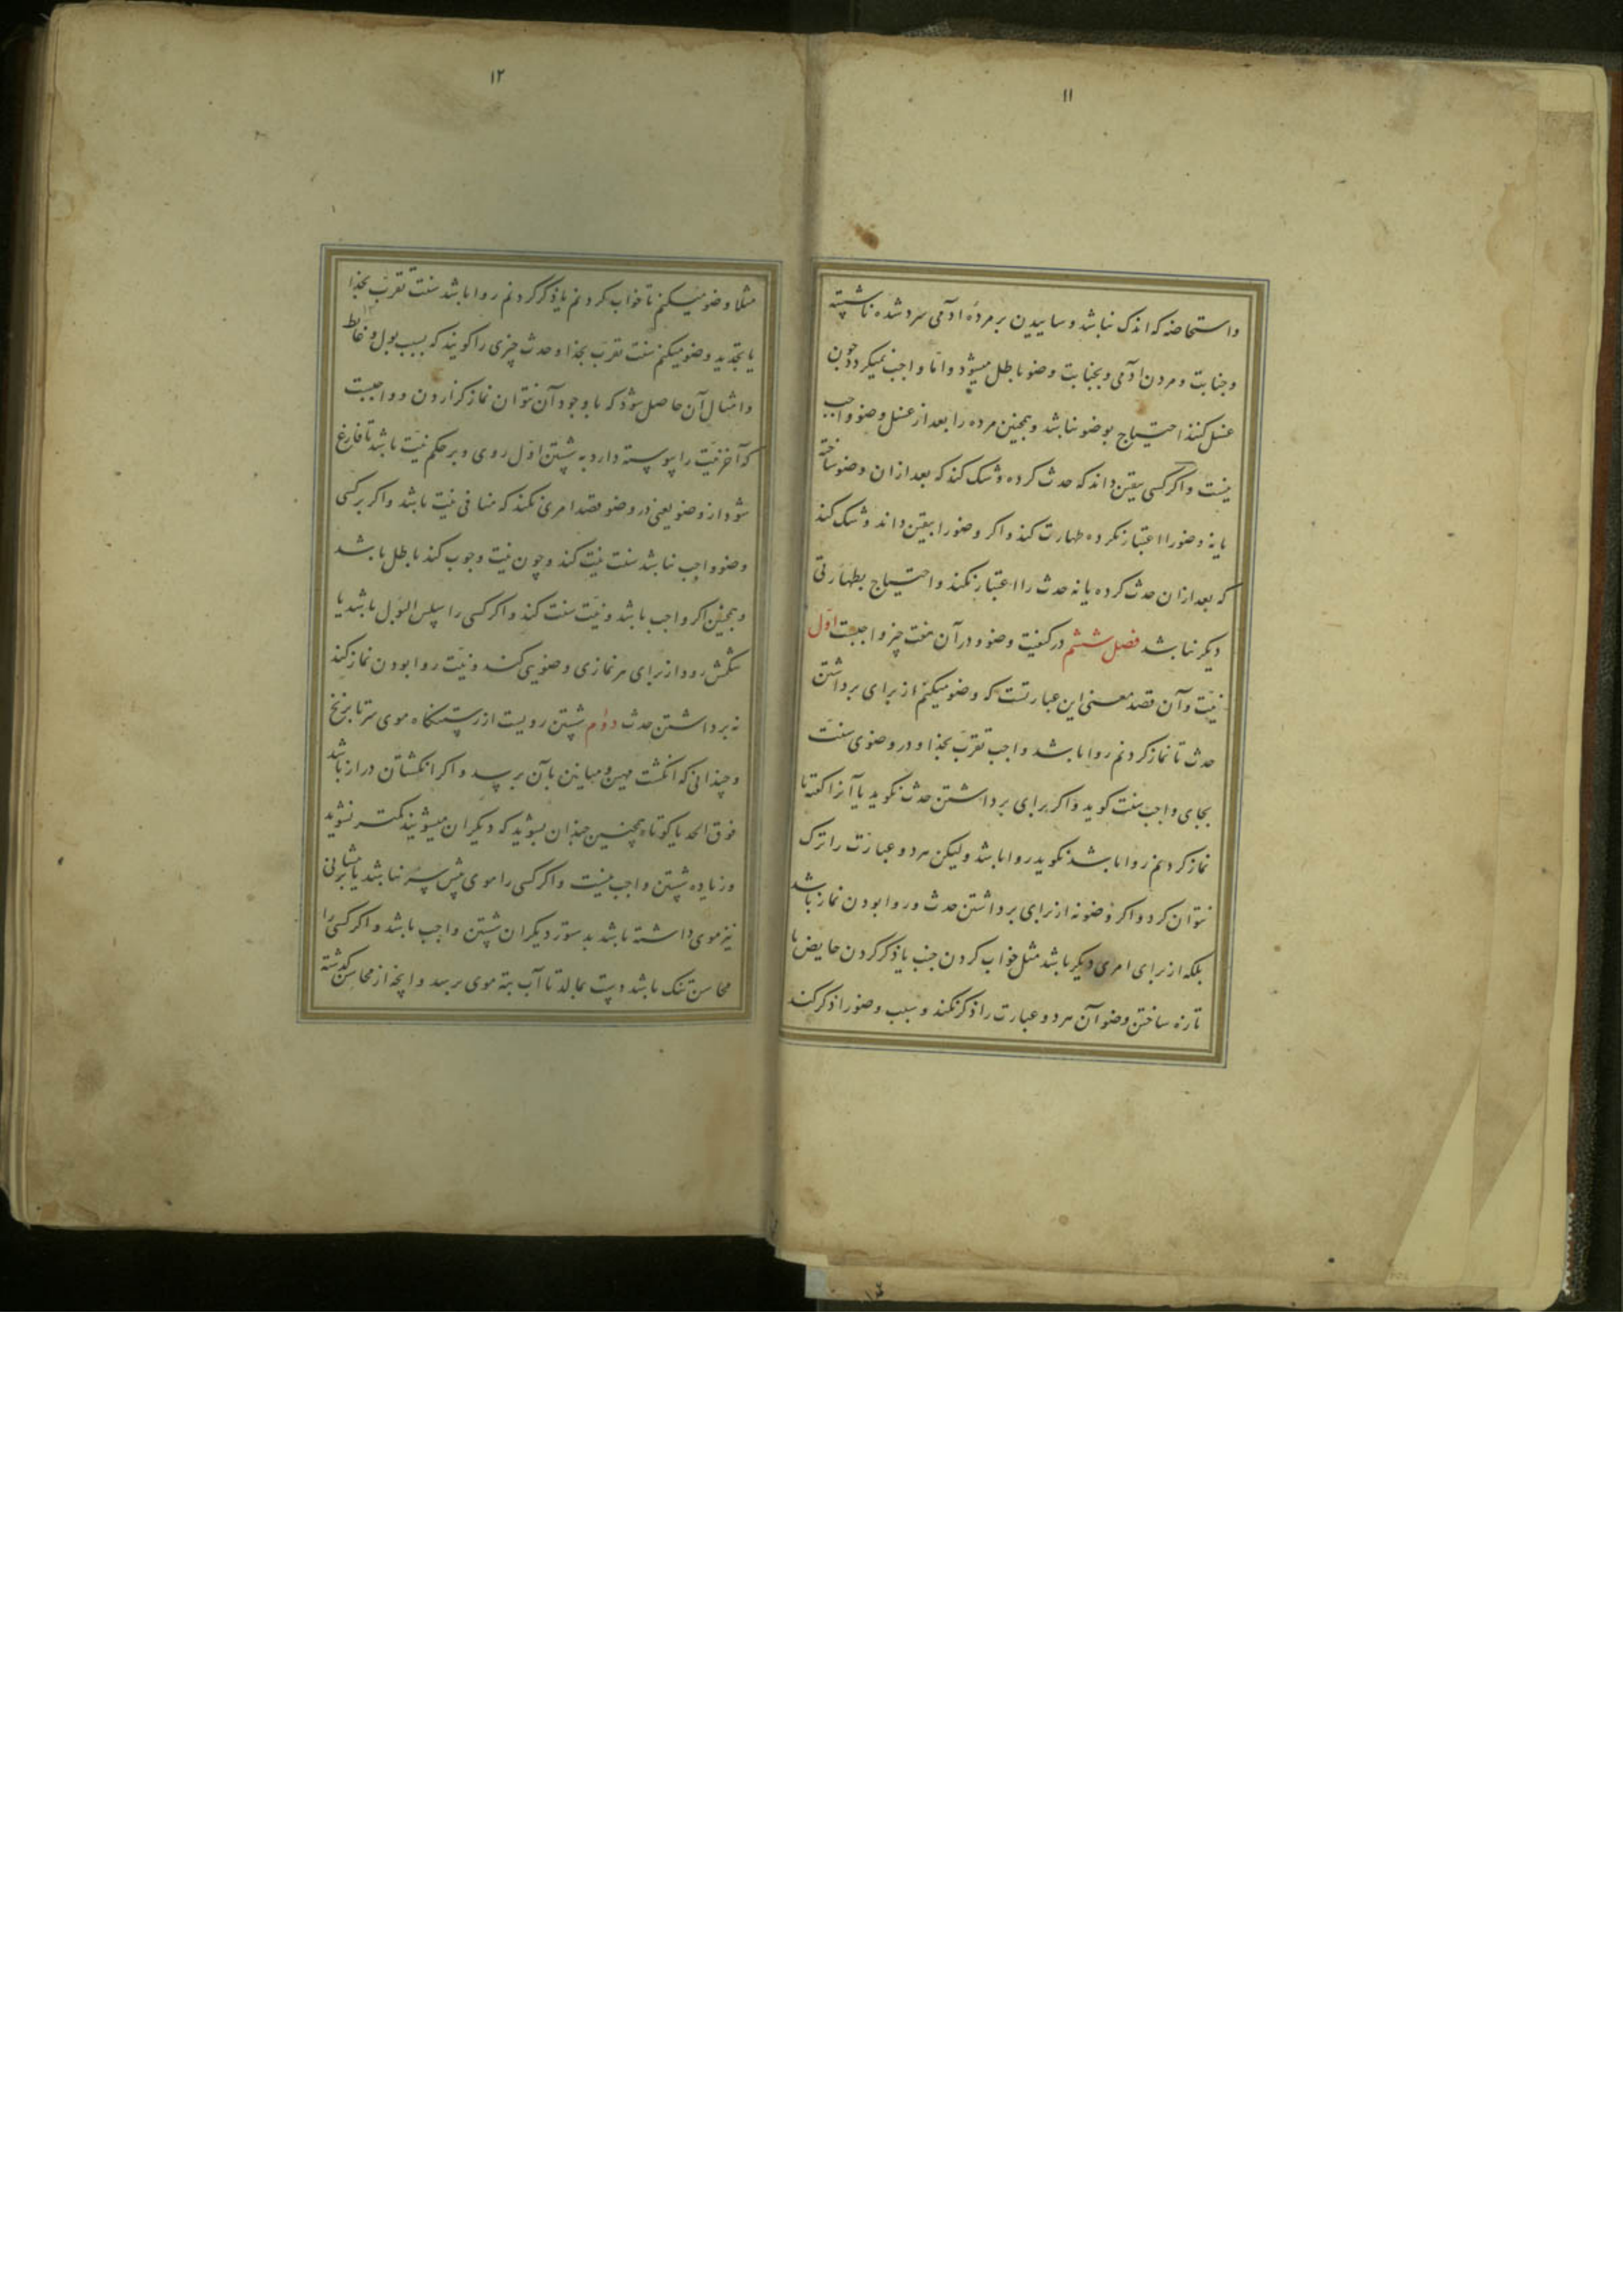 ۱۱
واستحاضه که اندک نباشد وساییدن بر مردهٔ آدمی سرد شده ناشسته
وجنابت ومردن آدمی وبجنابت وضو باطل میشود واما واجب نمیکردد چون
غسل کنند احتیاج بوضو نباشد وهمچنین مرده را بعد از غسل وضو واجب
نیست واکر کسی بیقین داند که حدث کرده وشک کند که بعد ازان وضو ساخته
یا نه وضو را اعتبار نکرده طهارت کند واکر وضو را بیقین داند وشک کند
که بعد ازان حدث کرده یا نه حدث را اعتبار نکند واحتیاج بطهارتی
دیکر نباشد فصل ششم در کیفیت وضو ودر آن هفت چیز واجبست اول
نیّت وآن قصد معنی این عبارتست که وضو میکنم از برای برداشتن
حدث تا نماز کردنم روا باشد واجب تقرب بخذا ودر وضوی سنت
بجای واجب سنت کوید واکر برای برداشتن حدث نکوید یا آنرا کفته تا
نماز کردنم روا باشد نکوید روا باشد ولیکن هر دو عبارت را ترک
نتوان کرد واکر وضو نه از برای برداشتن حدث وروا بودن نماز باشد
بلکه از برای امری دیکر باشد مثل خواب کردن جنب یا ذکر کردن حایض یا
تازه ساختن وضو آن هر دو عبارت را ذکر نکند وسبب وضو را ذکر کند
۱۲
مثلا وضو میکنم تا خواب کردنم یا ذکر کردنم روا باشد سنت تقرب بخذا
یا تجدید وضو میکنم سنت تقرب بخذا وحدث چیزی را کویند که بسبب بول وغایط
وامثال آن حاصل شود که با وجود آن نتوان نماز کزاردن وواجبست
که آخر نیّت را پیوسته دارد به شستن اول روی وبر حکم نیّت باشد تا فارغ
شود از وضو یعنی در وضو قصد امری نکند که منافی نیّت باشد واکر بر کسی
وضو واجب نباشد سنت نیّت کند وچون نیّت وجوب کند باطل باشد
وهمچنین اکر واجب باشد ونیّت سنت کند واکر کسی را سلس البول باشد یا
شکمش رود از برای هر نمازی وضویی کند ونیّت روا بودن نماز کند
نه برداشتن حدث دوم شستن رویست از رستنکاه موی سر تا بزنخ
وچندانی که انکشت مهین ومیانین بآن برسد واکر انکشتان دراز باشد
فوق الحد یا کوتاه همچنین چندان بشوید که دیکران میشویند کمتر نشوید
وزیاده شستن واجب نیست واکر کسی را موی پیش سر نباشد یا بر پیشانی
نیز موی داشته باشد بدستور دیکران شستن واجب باشد واکر کسی را
محاسن تنک باشد دست بمالد تا آب بته موی برسد وانچه از محاسن گذشته